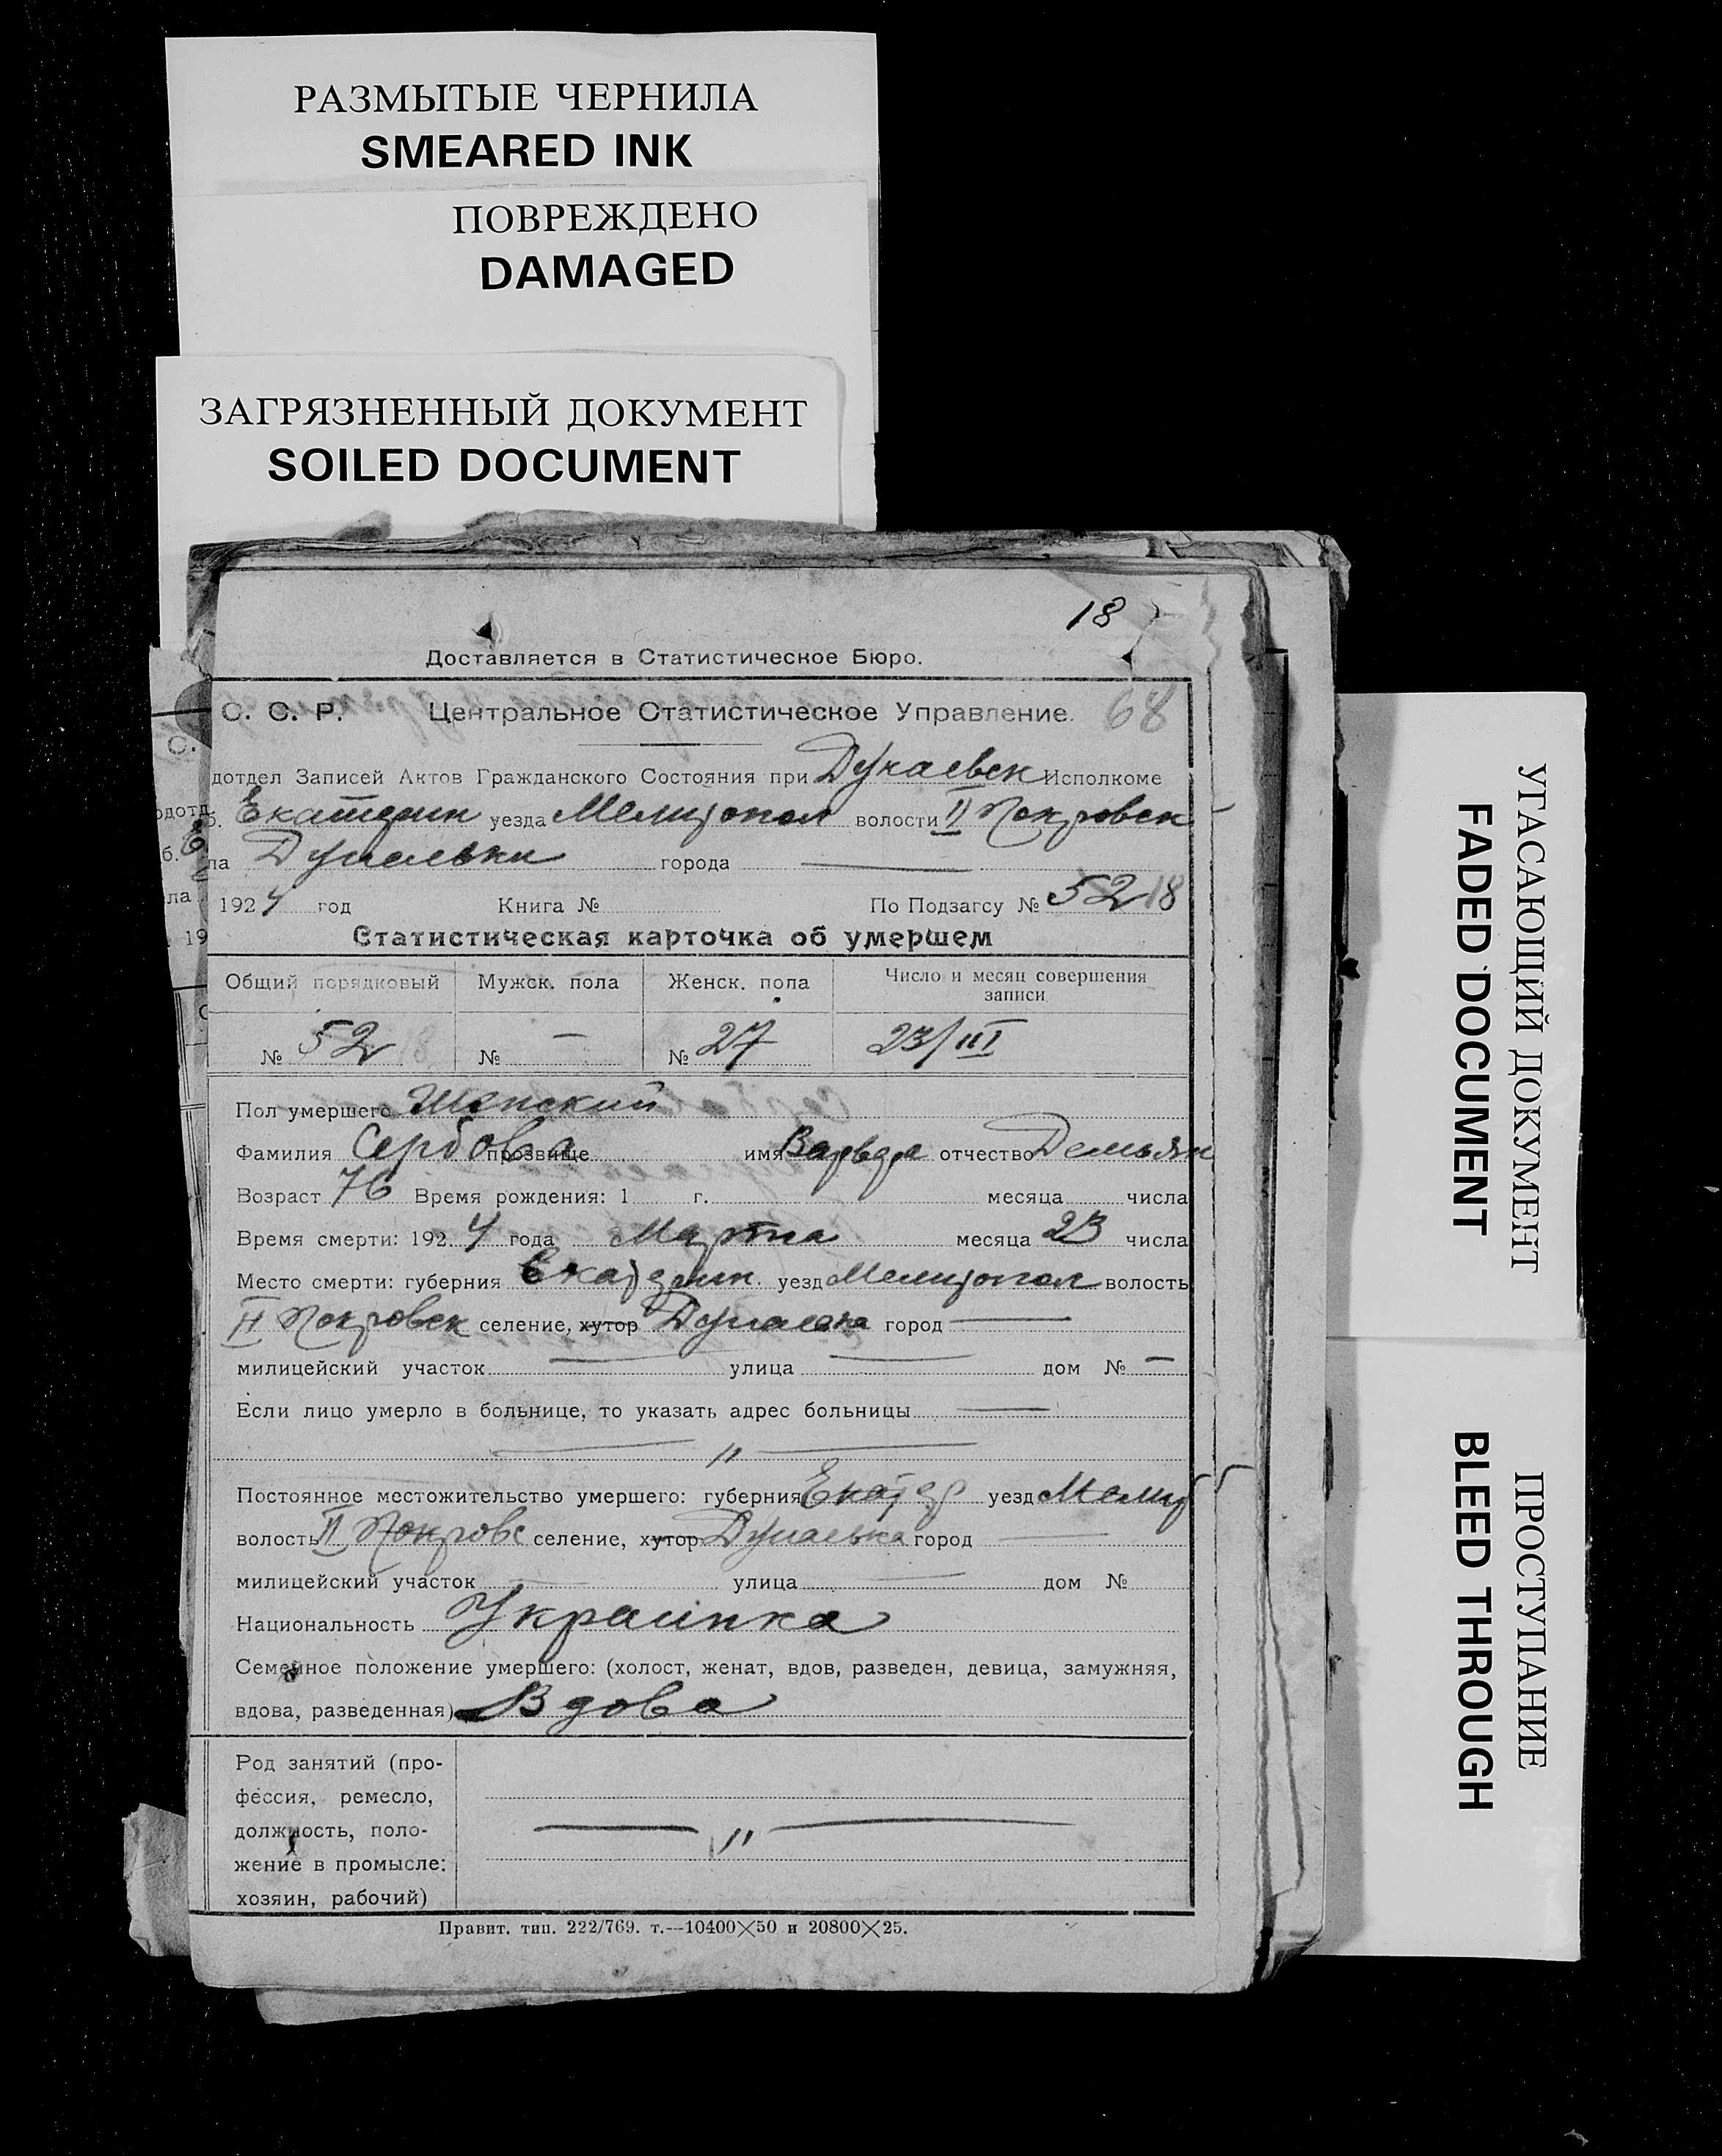 РАЗМЫТЫЕ ЧЕРНИЛА
SMEARED INK
ПОВРЕЖДЕНО
DAMAGED
ЗАГРЯЗНЕННЫЙ ДОКУМЕНТ
SOILED DOCUMENT
18
Доставляется в Статистическое Бюро.
С. С. Р. Центральное Статистическое Управление. 68
дотдел Записей Актов Гражданского Состояния при Дунаевск Исполкоме
б. Екатерин уезда Мелитопол волости II Покровск
ла Дунаевки города —
1924 год Книга № По Подзагсу № 52 18
Статистическая карточка об умершем
Общий порядковый Мужск. пола Женск. пола Число и месяц совершения записи
№ 52 № — № 27 23/III
Пол умершего Женский
Фамилия Сербова прозвище имя Варвара отчество Демьян
Возраст 76 Время рождения: 1 г. месяца числа
Время смерти: 1924 года Марта месяца 23 числа
Место смерти: губерния Екатерин. уезд Мелитопол волость
II Покровск селение, хутор Дунаевка город —
милицейский участок — улица — дом № —
Если лицо умерло в больнице, то указать адрес больницы —
— " —
Постоянное местожительство умершего: губерния Екатер уезд Мелит
волость II Покровс селение, хутор Дунаевка город —
милицейский участок — улица — дом №
Национальность Украинка
Семейное положение умершего: (холост, женат, вдов, разведен, девица, замужняя,
вдова, разведенная) Вдова
Род занятий (про-
фессия, ремесло,
должность, поло- — " —
жение в промысле:
хозяин, рабочий)
Правит. тип. 222/769. т.—10400×50 и 20800×25.
УГАСАЮЩИЙ ДОКУМЕНТ
FADED DOCUMENT
ПРОСТУПАНИЕ
BLEED THROUGH